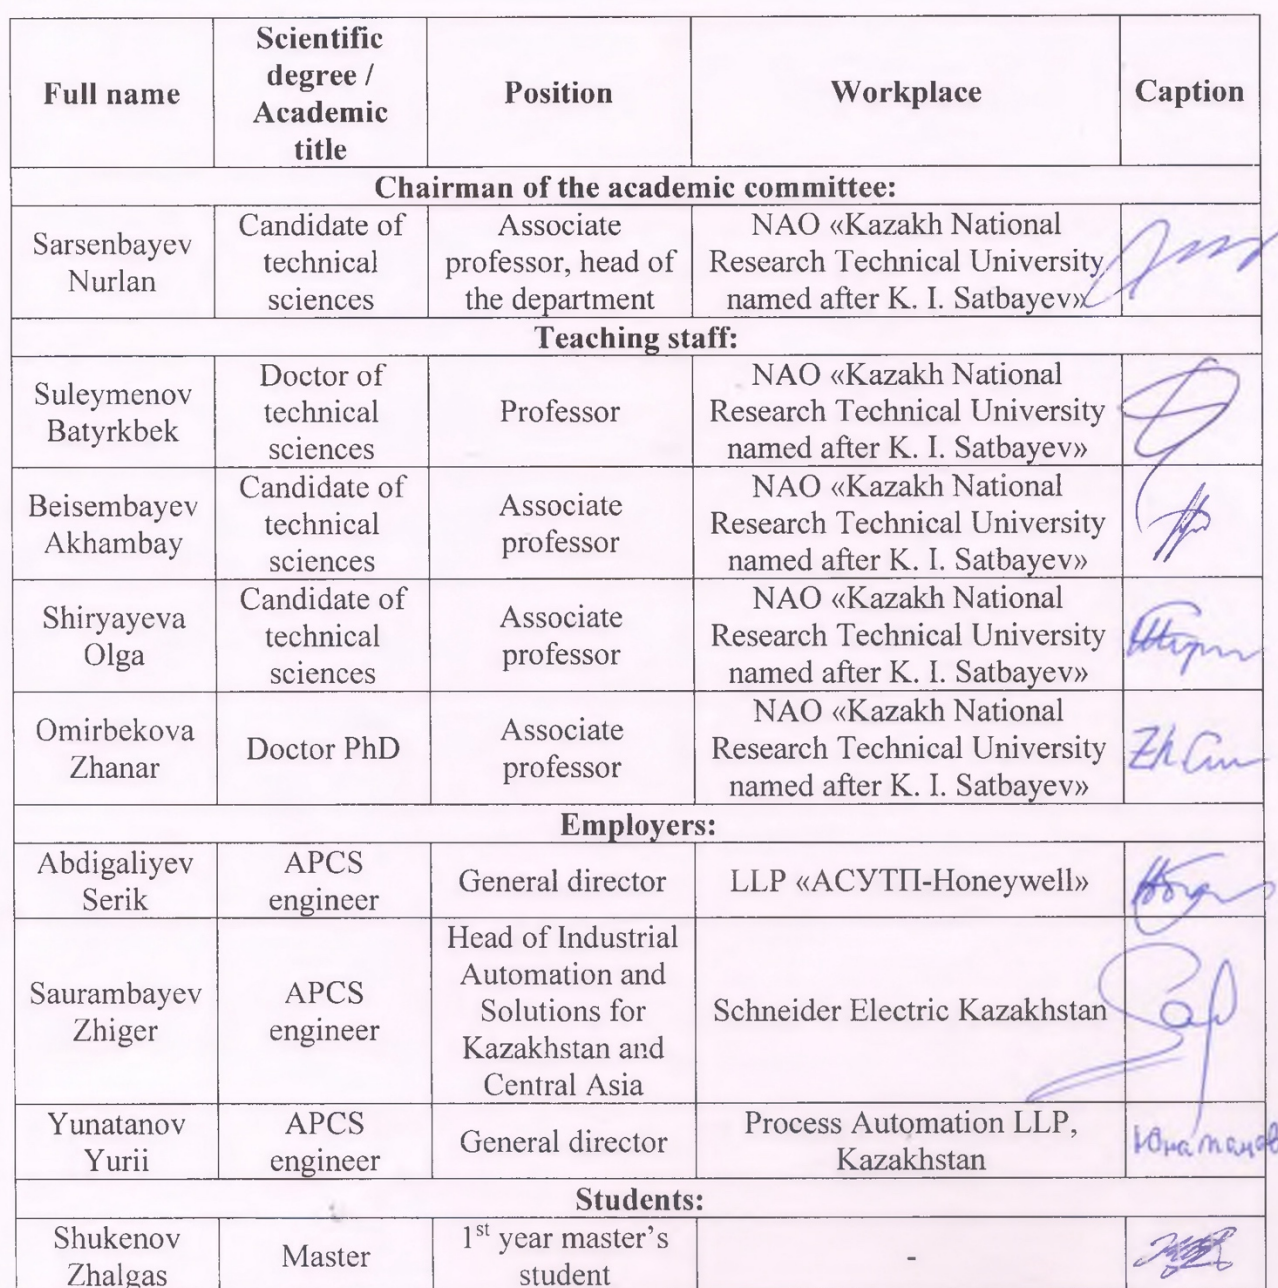 Full name
Scientific
degree /
Academic
title
Position
Workplace
Caption
Chairman of the academic committee:
Sarsenbayev
Nurlan
Candidate of
technical
sciences
Associate
professor, head of
the department
NAO «Kazakh National
Research Technical University
named after K. I. Satbayev»
Teaching staff:
Suleymenov
Batyrkbek
Doctor of
technical
sciences
Professor
NAO «Kazakh National
Research Technical University
named after K. I. Satbayev»
Beisembayev
Akhambay
Candidate of
technical
sciences
Associate
professor
NAO «Kazakh National
Research Technical University
named after K. I. Satbayev»
Shiryayeva
Olga
Candidate of
technical
sciences
Associate
professor
NAO «Kazakh National
Research Technical University
named after K. I. Satbayev»
Omirbekova
Zhanar
Doctor PhD
Associate
professor
NAO «Kazakh National
Research Technical University
named after K. I. Satbayev»
Employers:
Abdigaliyev
Serik
APCS
engineer
General director
LLP «АСУТП-Honeywell»
Saurambayev
Zhiger
APCS
engineer
Head of Industrial
Automation and
Solutions for
Kazakhstan and
Central Asia
Schneider Electric Kazakhstan
Yunatanov
Yurii
APCS
engineer
General director
Process Automation LLP,
Kazakhstan
Юнатанов
Students:
Shukenov
Zhalgas
Master
1st year master's
student
-